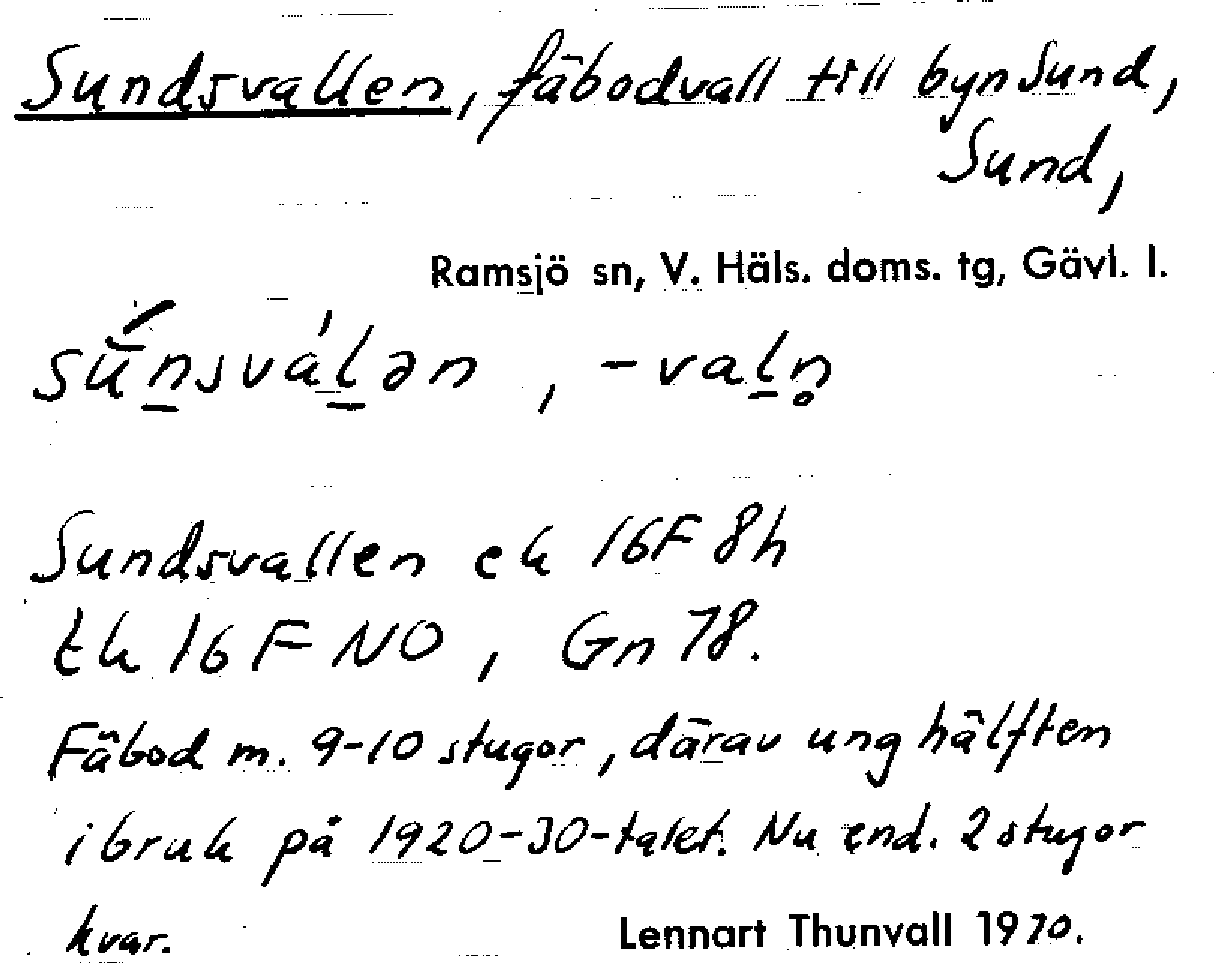 Sundsvallen, fäbodvall till byn Sund,
Sund,
Ramsjö sn, V. Häls. doms. tg, Gävl. l.
sú̄n̠svàl̠ən, -val̠n̥
Sundsvallen ek 16F 8h
tk 16F NO, Gn 78.
Fäbod m. 9-10 stugor, därav ung hälften
i bruk på 1920-30-talet. Nu end. 2 stugor
kvar.
Lennart Thunvall 1970.